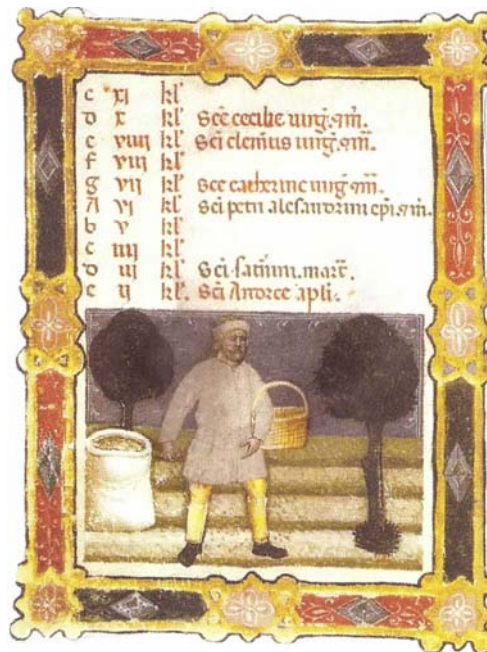 c xj kl'
d x kl' Sce cecilie uirg. ⁊m̅.
e viiij kl' Sci clemētis uirg. ⁊m̅.
f viij kl'
g vij kl' Sce catherine uirg. ⁊m̅.
A vj kl' Sci petri alesandrini epi. ⁊m̅.
b v kl'
c iiij kl'
d iij kl' Sci satīnini. mart̅.
e ij kl'. Sci Andree apli.